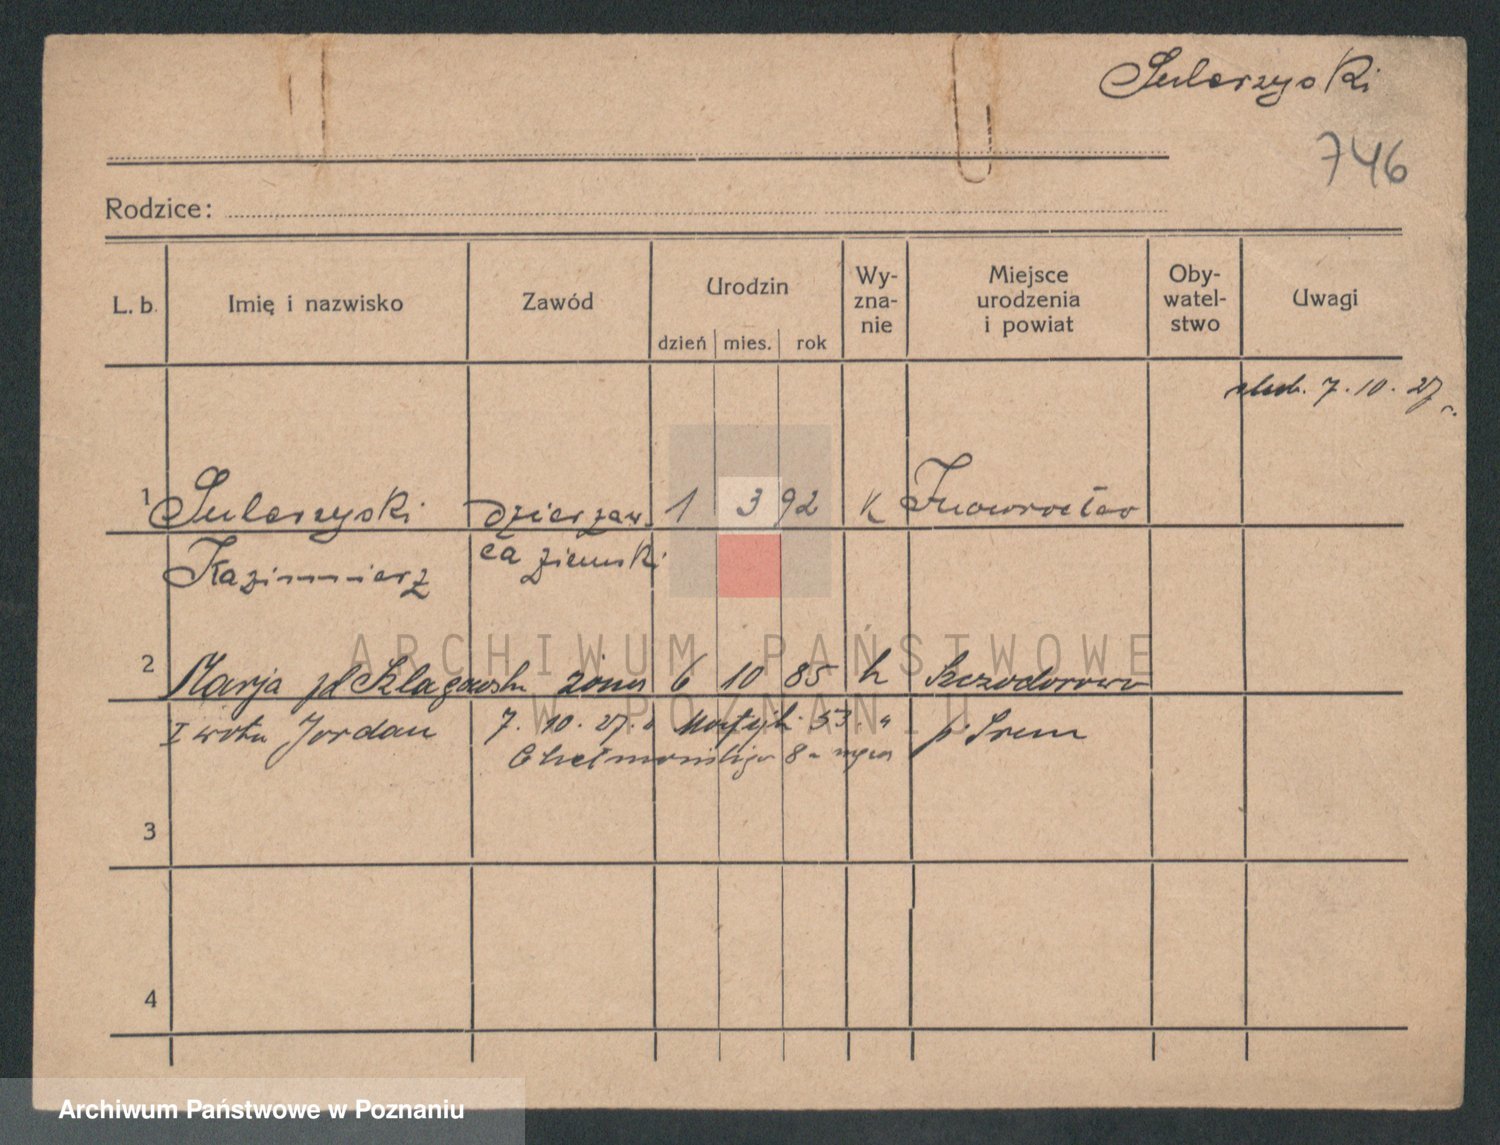 Sulerzyski
746
Rodzice:
L. b. Imię i nazwisko Zawód Urodzin dzień mies. rok Wy-zna-nie Miejsce urodzenia i powiat Oby-watel-stwo Uwagi
7. 10. 27 r.
1 Sulerzyski Dzierżaw 1 3 92 K Inowrocław
Kazimierz ca ziemski
ARCHIWUM PAŃSTWOWE
2 Marja żona 6 10 85 k
W POZNANIU
I voto Jordan 7. 10. 27. 53. p Śrem
8
3
4
Archiwum Państwowe w Poznaniu